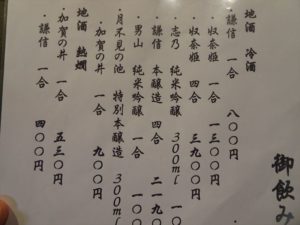 御飲み
地酒 冷酒
・謙信 一合 八〇〇円
・収奈姫 一合 一三〇〇円
・収奈姫 四合 三九〇〇円
・志乃 純米吟醸 300ml 一〇
・謙信 本醸造 四合 二一九〇
・男山 純米吟醸 一合 一〇〇
・月不見の池 特別本醸造 300ml
・加賀の井 一合 九〇〇円
地酒 熱燗
・加賀の井 一合 五三〇円
・謙信 一合 四〇〇円